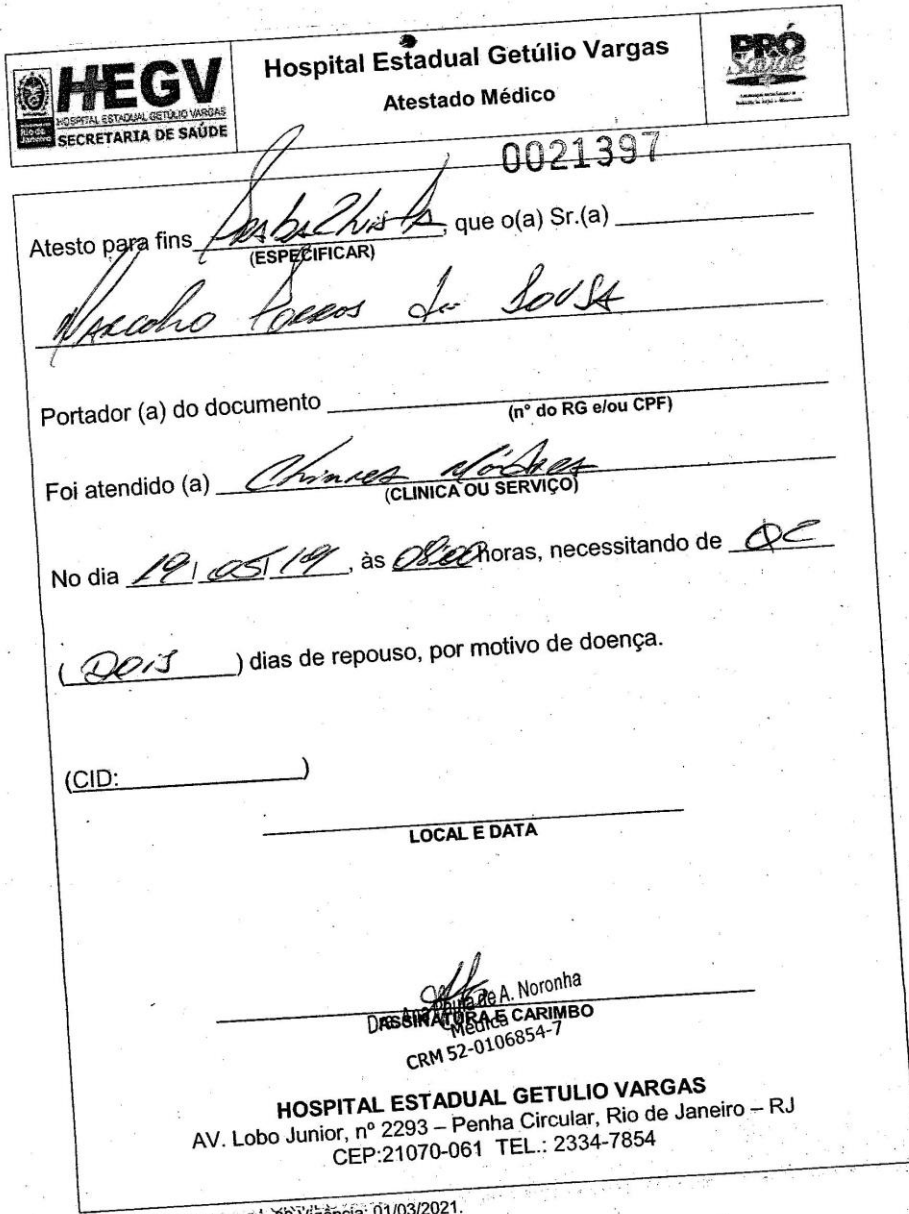 HEGV
HOSPITAL ESTADUAL GETÚLIO VARGAS
SECRETARIA DE SAÚDE
Rio de Janeiro
Hospital Estadual Getúlio Vargas
Atestado Médico
PRÓ
Saúde
0021397
Atesto para fins, que o(a) Sr.(a)
(ESPECIFICAR)
de Sousa
Portador (a) do documento
(n° do RG e/ou CPF)
Foi atendido (a)
(CLINICA OU SERVIÇO)
No dia 19/05/19, às 08:00 horas, necessitando de 02
(Dois) dias de repouso, por motivo de doença.
(CID: )
LOCAL E DATA
de A. Noronha
ASSINATURA E CARIMBO
Médica
CRM 52-0106854-7
HOSPITAL ESTADUAL GETULIO VARGAS
AV. Lobo Junior, nº 2293 – Penha Circular, Rio de Janeiro – RJ
CEP:21070-061 TEL.: 2334-7854
Vigência: 01/03/2021.